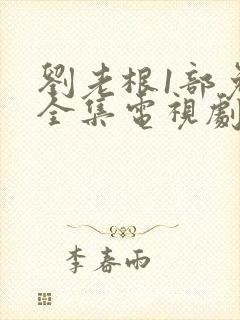 劉老根1部免
全集電視劇
李春雨